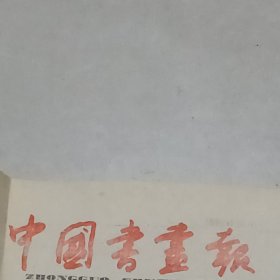 中國書畫報
ZHONGGUO